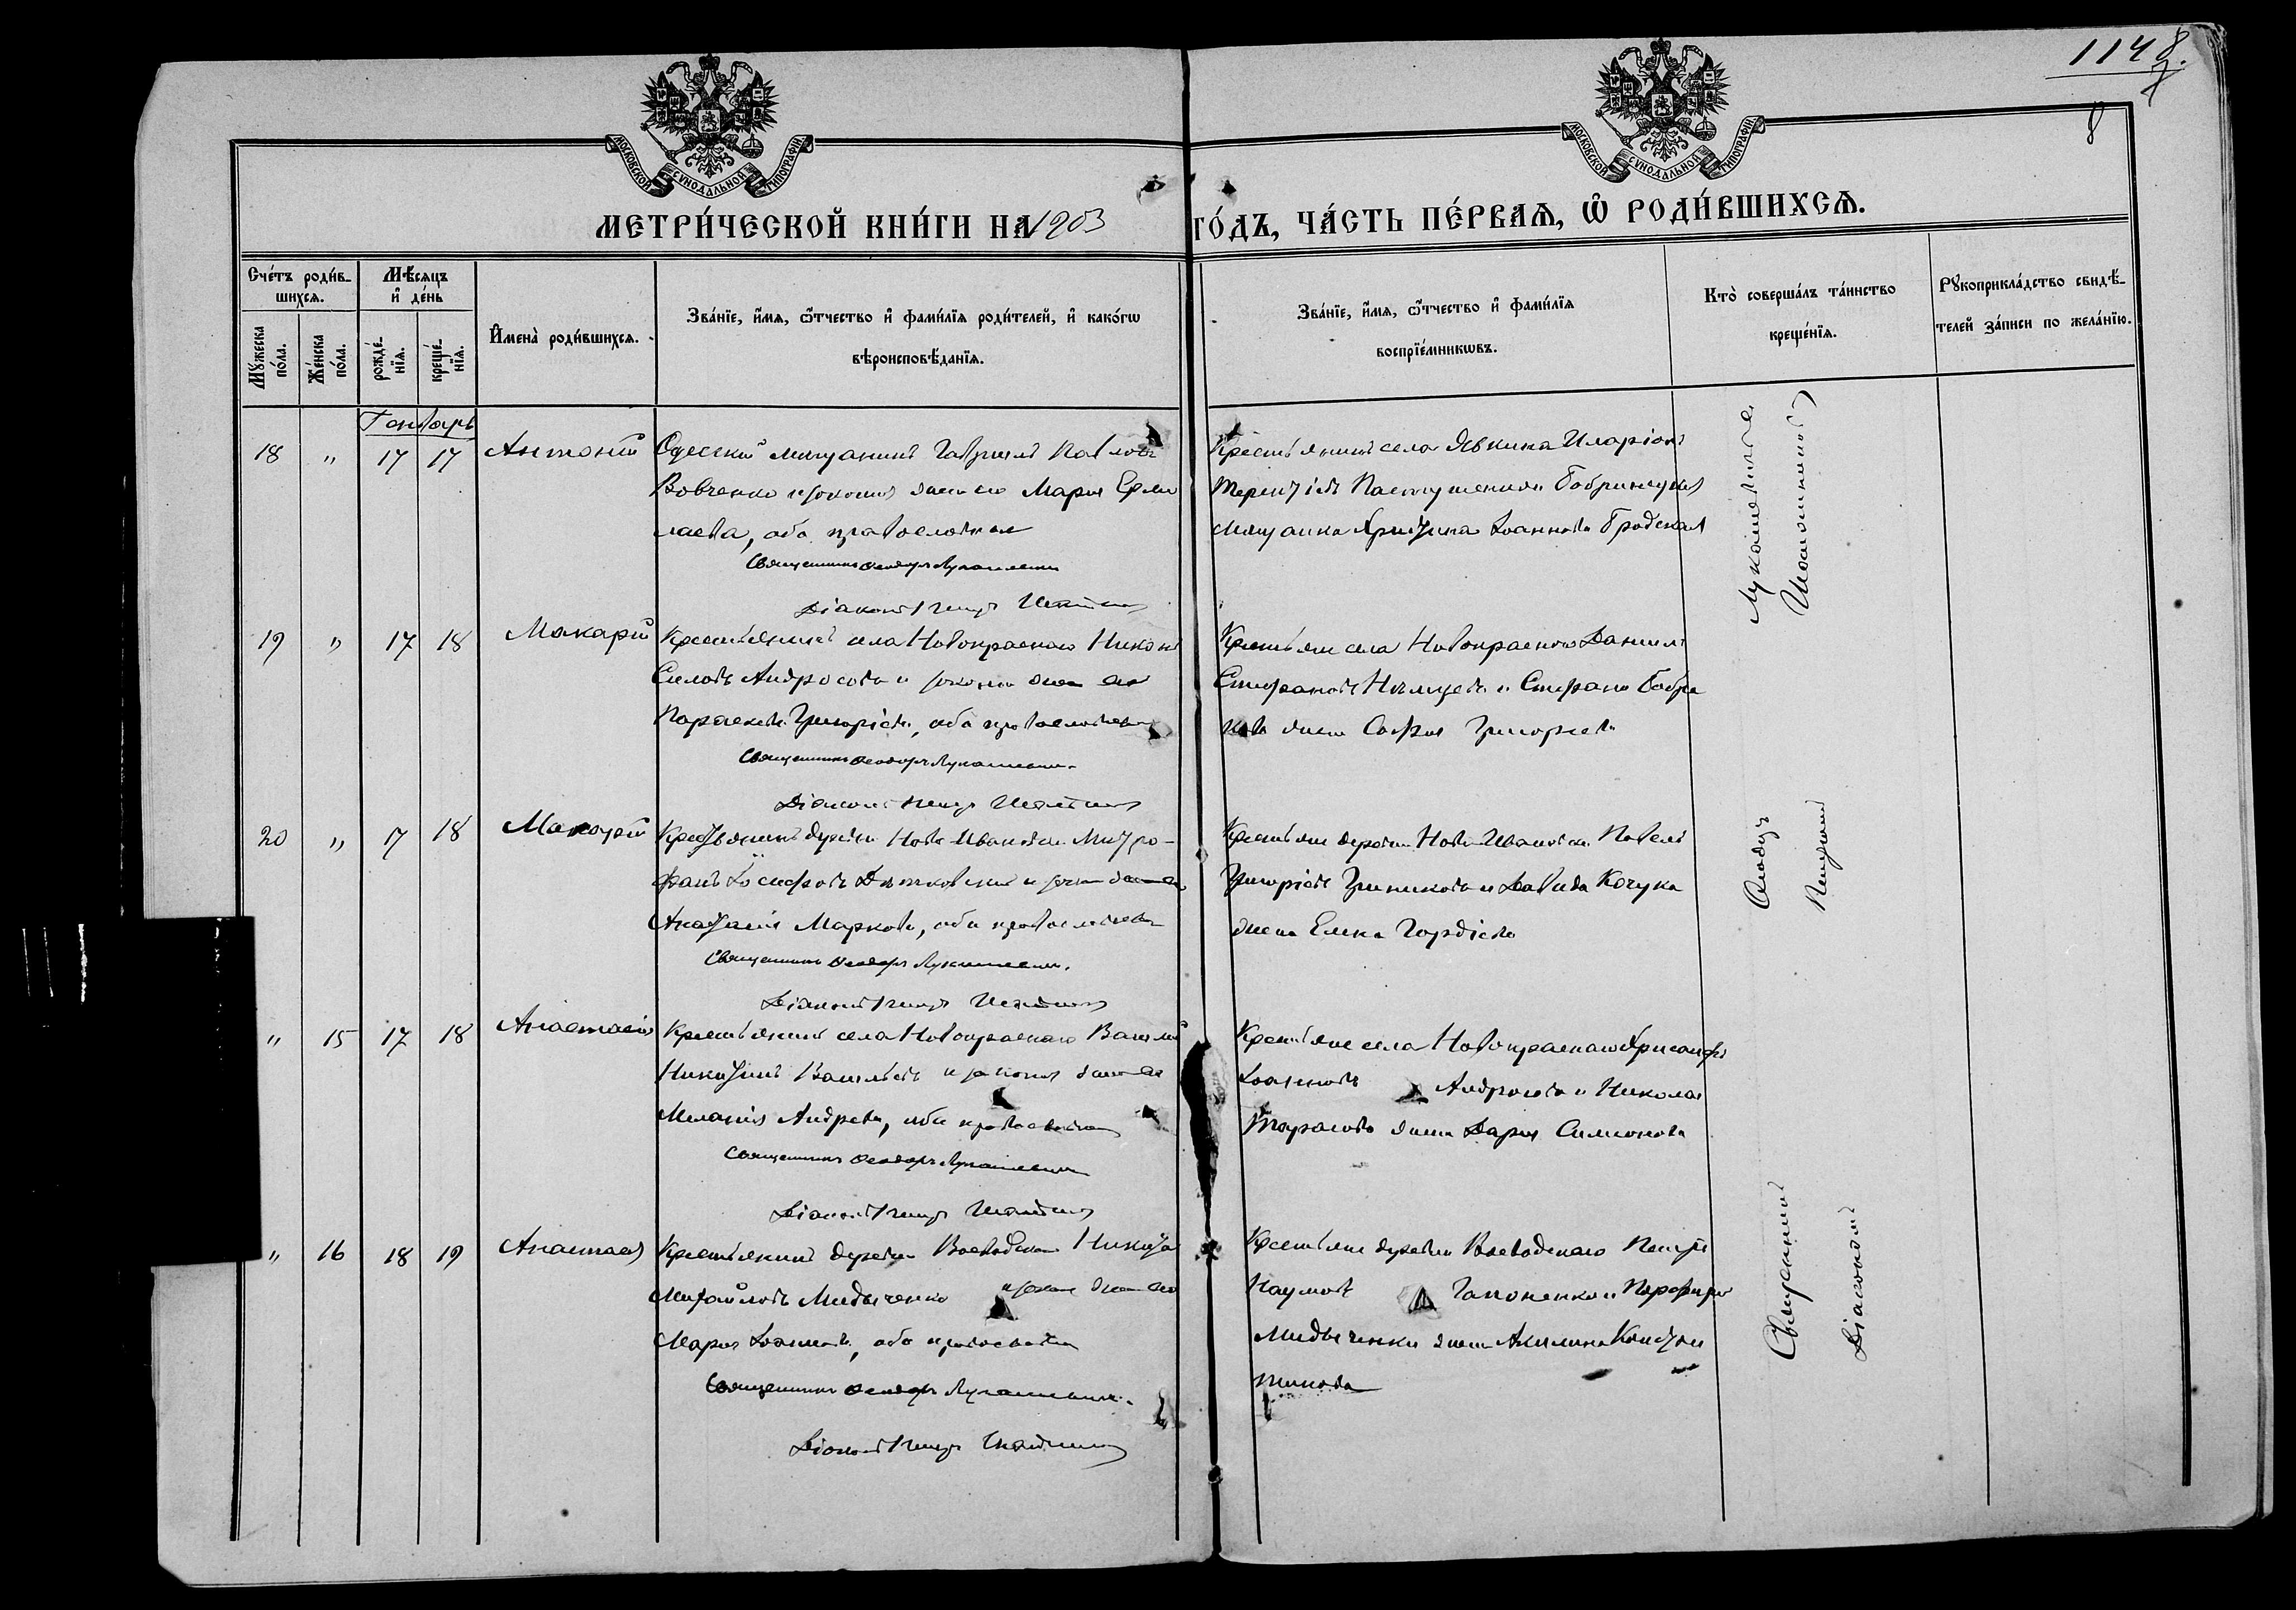 1148.
8
МОСКОВСКОЙ СѴНОДАЛЬНОЙ ТИПОГРАФІИ
МОСКОВСКОЙ СѴНОДАЛЬНОЙ ТИПОГРАФІИ
МЕТРИ́ЧЕСКОЙ КНИ́ГИ НА 1903 ГО́ДЪ, ЧА́СТЬ ПЕ́РВАѦ, Ѡ҆ РОДИ́ВШИХСѦ.
Сче́тъ роди́в-
шихсѧ.
Мꙋжеска по́ла.
Же́нска по́ла.
Мѣ́сѧцъ
и҆ де́нь
рожде́-
нїѧ.
креще́-
нїѧ.
И҆мена̀ роди́вшихсѧ.
Зва́нїе, и҆́мѧ, ѻ҆́тчество и҆ фами́лїѧ роди́телей, и҆ како́гѡ
вѣроисповѣ́данїѧ.
Зва́нїе, и҆́мѧ, ѻ҆́тчество и҆ фами́лїѧ
воспрїе́мникѡвъ.
Кто̀ соверша́лъ та́инство
креще́нїѧ.
Рꙋкоприкла́дство свидѣ́-
телей за́писи по жела́нїю.
Январь
18 " 17 17 Антоній
Одесскій мещанинъ Гавріилъ Павловъ
Вовченко и законная жена его Марія Ерми
лаева, оба православные
Священникъ Ѳеодоръ Лукашевичъ
Діаконъ Петръ
Крестьянинъ села Явкина Иларіонъ
Терентіевъ Пастушенко и Бобринецкая
мещанка Христина Іоаннова Бродская
19 " 17 18 Макарій
Крестьянинъ села Новокраснаго Никонъ
Силовъ Андросовъ и законная жена его
Параскева Григоріева, оба православные
Священникъ Ѳеодоръ Лукашевичъ.
Діаконъ Петръ
Крестьяне села Новокраснаго Даніилъ
Стефановъ Нѣмцевъ и Стефана Бобри
кова жена Софія Григорьева
20 " 17 18 Макарій
Крестьянинъ деревни Ново-Ивановки Митро-
фанъ Іосифовъ и законная жена его
Анастасія Маркова, оба православные
Священникъ Ѳеодоръ Лукашевичъ.
Діаконъ Петръ
Крестьяне деревни Ново-Ивановки Павелъ
Григоріевъ и Давида Кочука
жена Елена Гордіева
" 15 17 18 Анастасія
Крестьянинъ села Новокраснаго Василій
Никитинъ Васильевъ и законная жена его
Меланія Андреева, оба православные
Священникъ Ѳеодоръ Лукашевичъ
Діаконъ Петръ
Крестьяне села Новокраснаго Хрисанфъ
Іоанновъ Андросовъ и Николая
Тарасова жена Дарія Симеонова
" 16 18 19 Анастасія
Крестьянинъ деревни Воеводской Никита
Михайловъ и законная жена его
Марія Іоаннова, оба православные
Священникъ Ѳеодоръ Лукашевичъ.
Діаконъ Петръ
Крестьяне деревни Воеводскаго Петръ
Наумовъ Гапоненко и Порфирія
жена Акилина Кондра
тикова
Священникъ Ѳеодоръ Лукашевичъ
Діаконъ Петръ